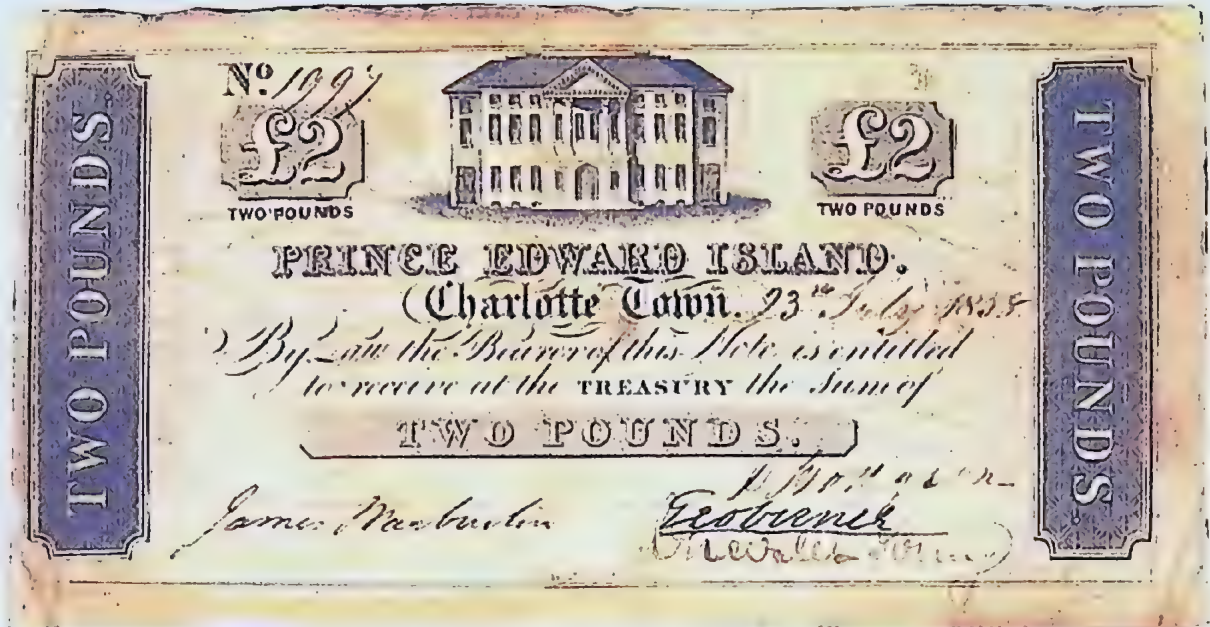 TWO POUNDS.
Nº
£2
TWO POUNDS
£2
TWO POUNDS
PRINCE EDWARD ISLAND.
(Charlotte Town. 23rd July
By Law the Bearer of this Note is entitled
to receive at the TREASURY the Sum of
TWO POUNDS.
James Warburton
TWO POUNDS.